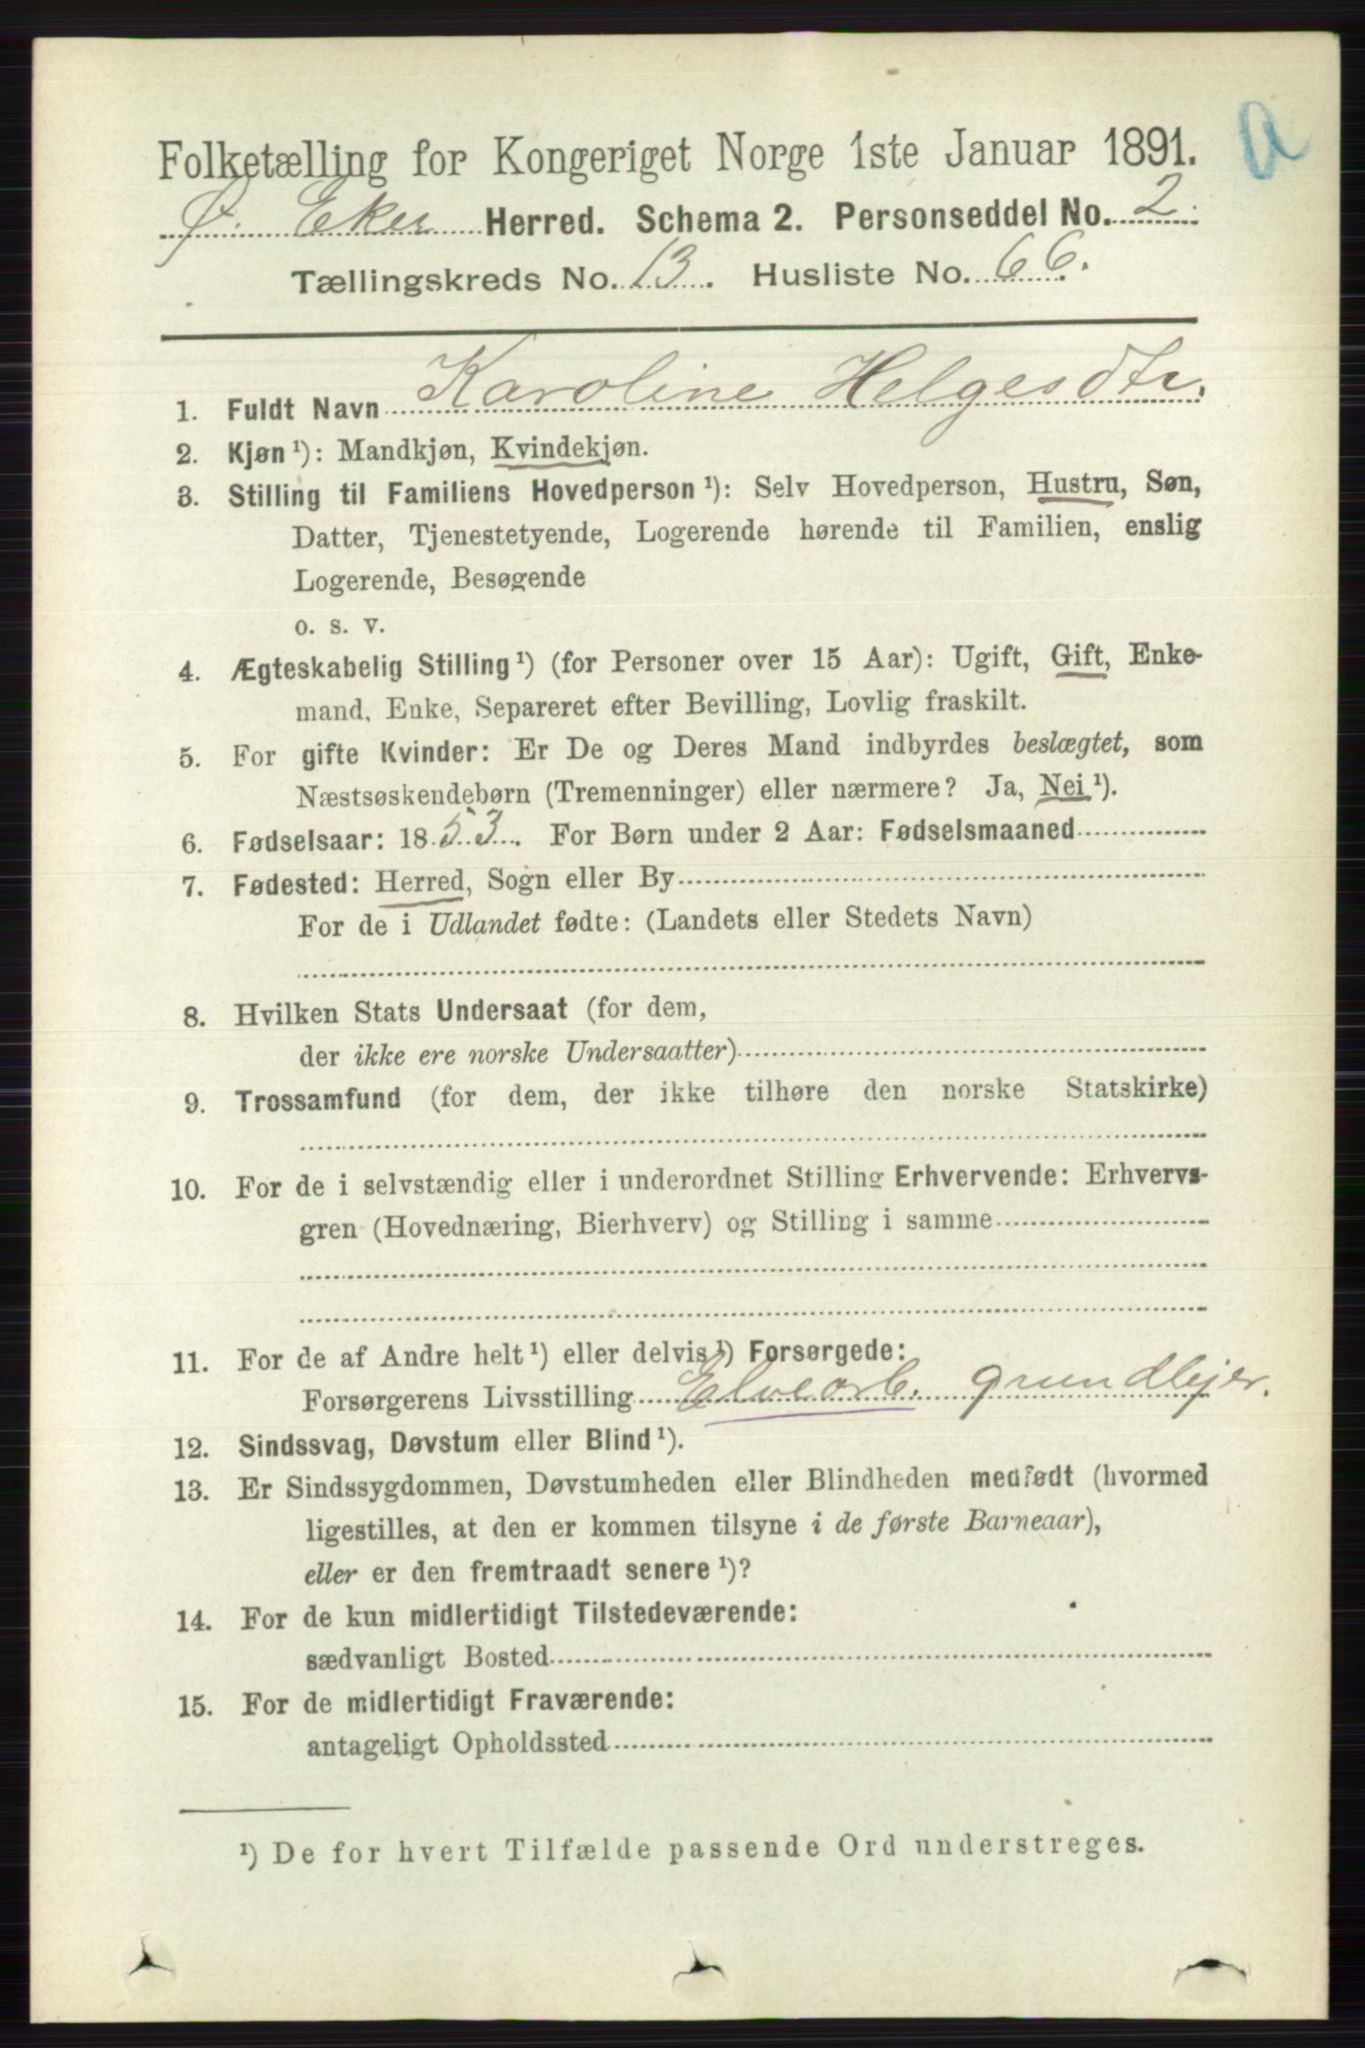 a
Folketælling for Kongeriget Norge 1ste Januar 1891.
Ø. Eker Herred. Schema 2. Personseddel No. 2.
Tællingskreds No. 13. Husliste No. 66.
1. Fuldt Navn Karoline Helgesdtr.
2. Kjøn¹): Mandkjøn, Kvindekjøn.
3. Stilling til Familiens Hovedperson¹): Selv Hovedperson, Hustru, Søn,
Datter, Tjenestetyende, Logerende hørende til Familien, enslig
Logerende, Besøgende
o. s. v.
4. Ægteskabelig Stilling¹) (for Personer over 15 Aar): Ugift, Gift, Enke-
mand, Enke, Separeret efter Bevilling, Lovlig fraskilt.
5. For gifte Kvinder: Er De og Deres Mand indbyrdes beslægtet, som
Næstsøskendebørn (Tremenninger) eller nærmere? Ja, Nei¹).
6. Fødselsaar: 1853. For Børn under 2 Aar: Fødselsmaaned
7. Fødested: Herred, Sogn eller By
For de i Udlandet fødte: (Landets eller Stedets Navn)
8. Hvilken Stats Undersaat (for dem,
der ikke ere norske Undersaatter)
9. Trossamfund (for dem, der ikke tilhøre den norske Statskirke)
10. For de i selvstændig eller i underordnet Stilling Erhvervende: Erhvervs-
gren (Hovednæring, Bierhverv) og Stilling i samme
11. For de af Andre helt¹) eller delvis¹) Forsørgede:
Forsørgerens Livsstilling Elvearb. grundejer.
12. Sindssvag, Døvstum eller Blind¹).
13. Er Sindssygdommen, Døvstumheden eller Blindheden medfødt (hvormed
ligestilles, at den er kommen tilsyne i de første Barneaar),
eller er den fremtraadt senere¹)?
14. For de kun midlertidigt Tilstedeværende:
sædvanligt Bosted
15. For de midlertidigt Fraværende:
antageligt Opholdssted
¹) De for hvert Tilfælde passende Ord understreges.